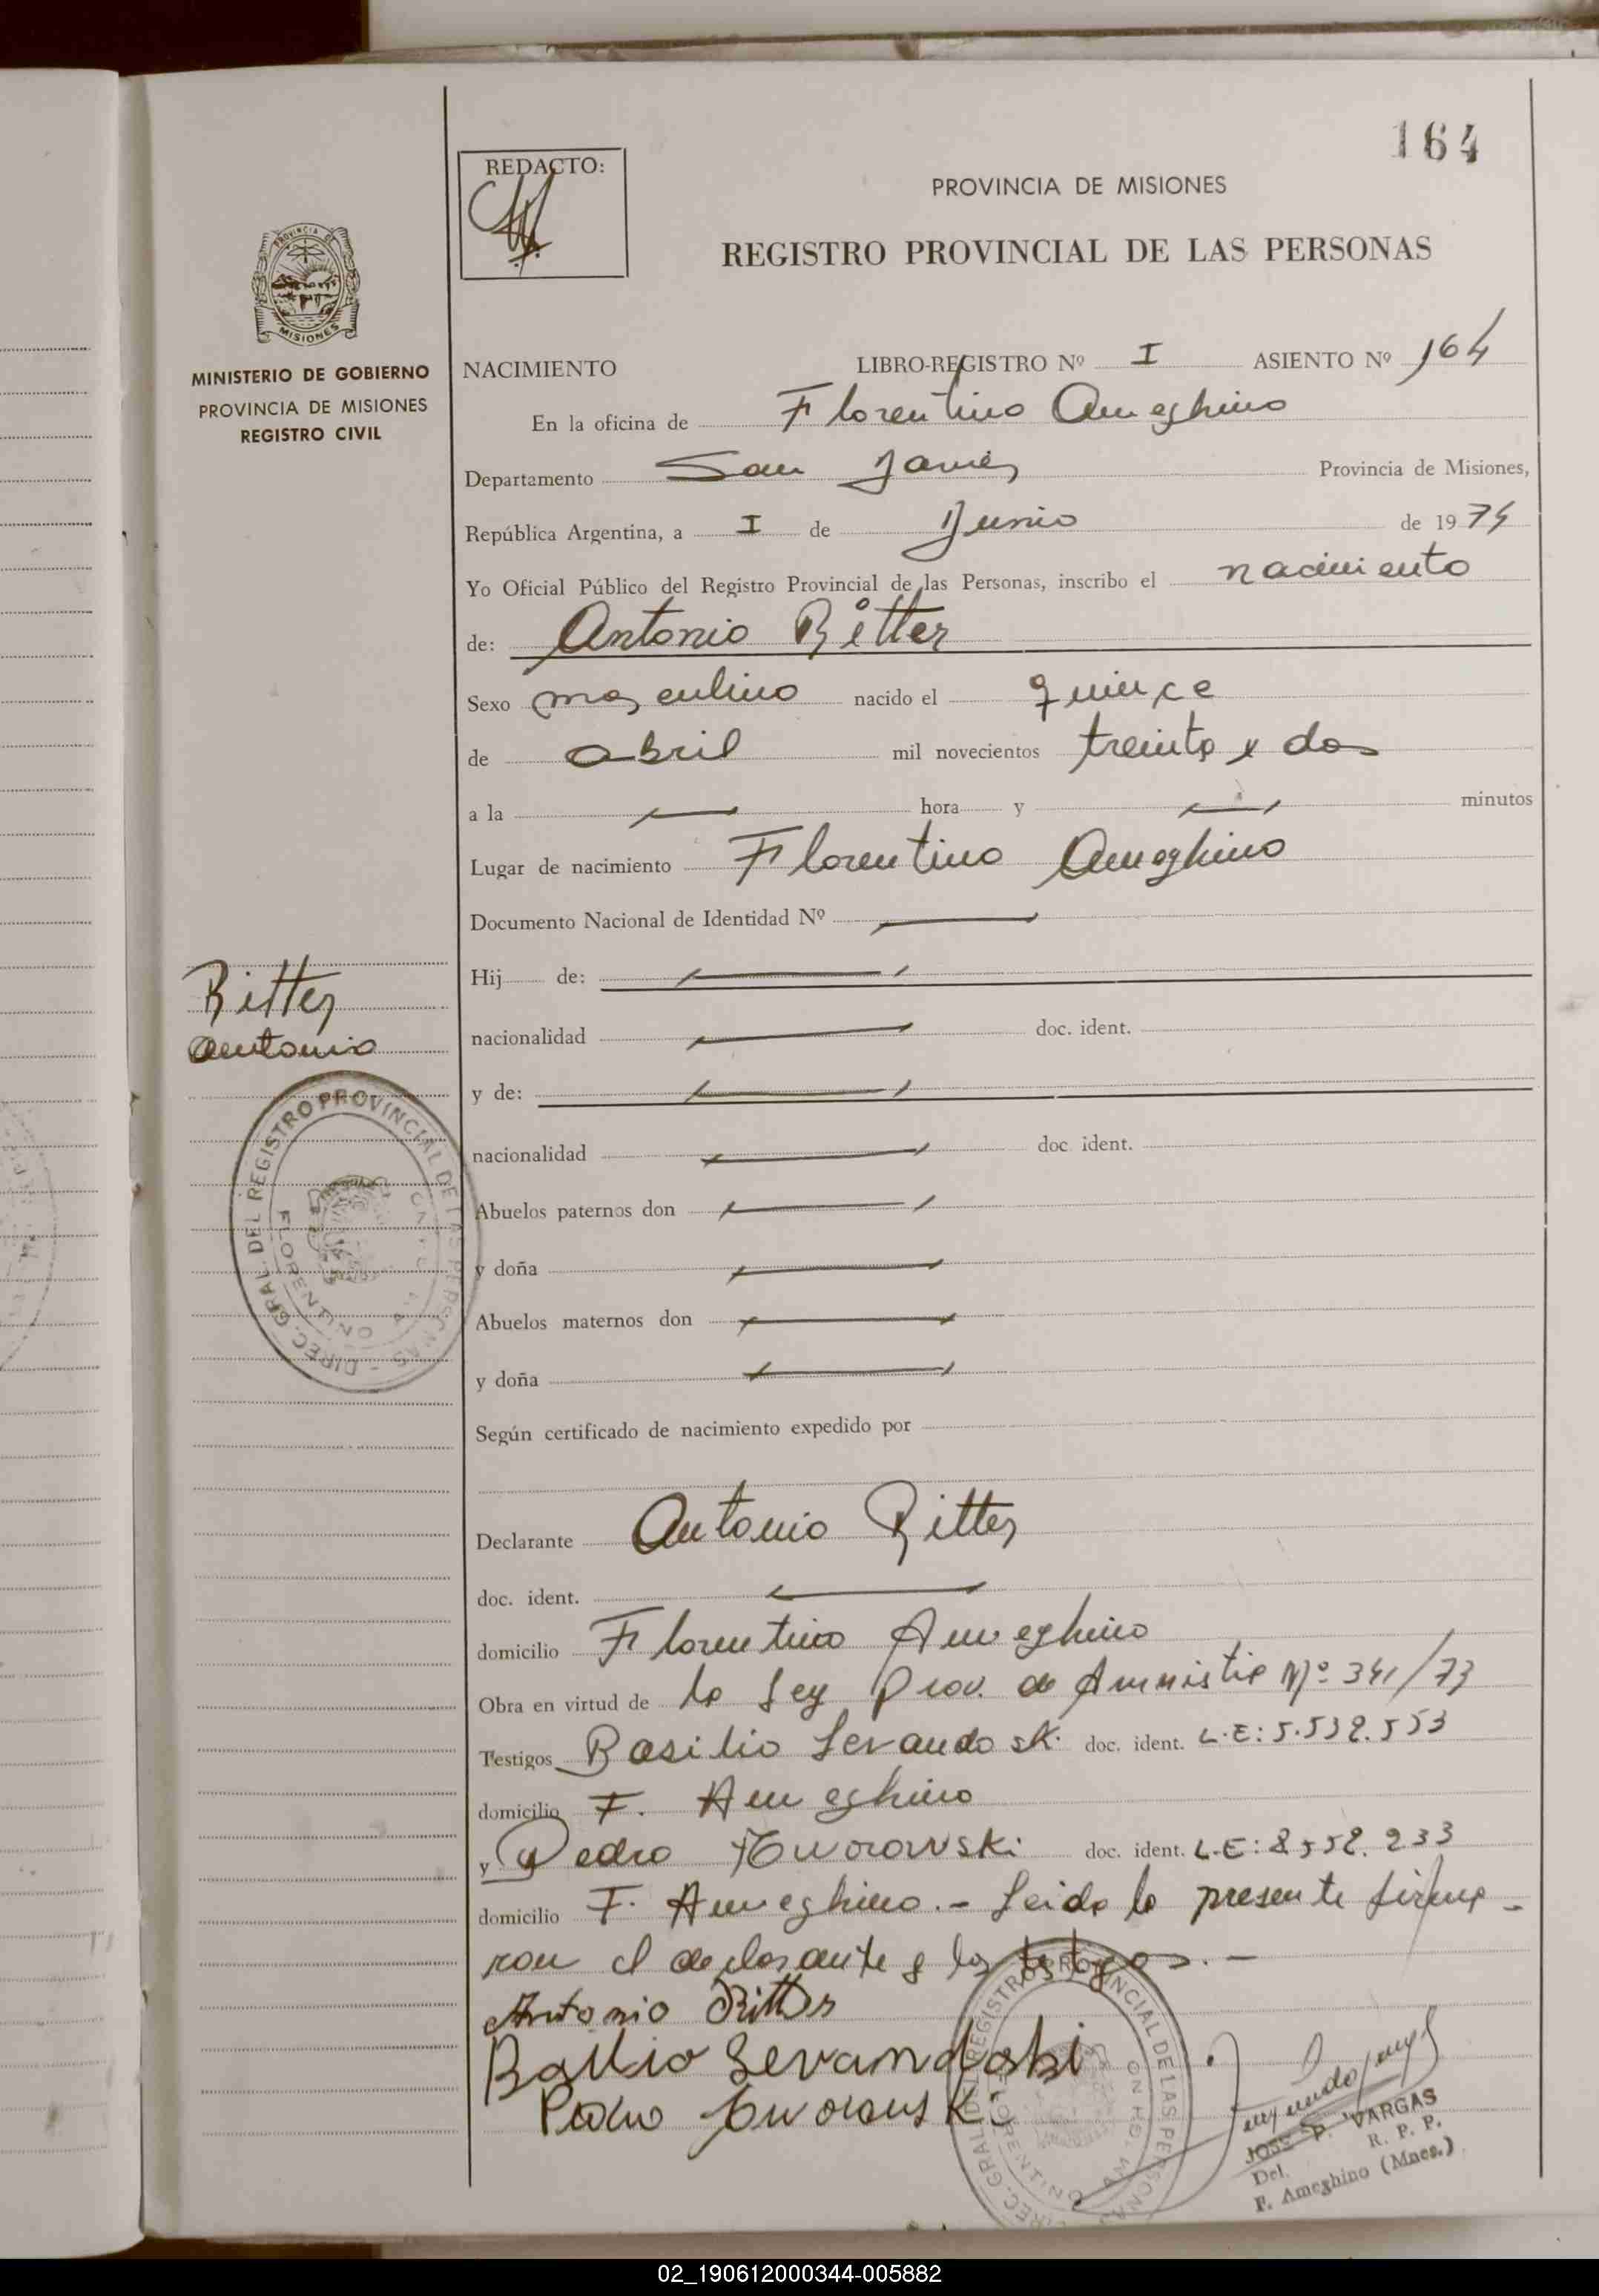 164
REDACTO:
PROVINCIA DE MISIONES
REGISTRO PROVINCIAL DE LAS PERSONAS
PROVINCIA DE
MISIONES
MINISTERIO DE GOBIERNO
PROVINCIA DE MISIONES
REGISTRO CIVIL
NACIMIENTO LIBRO-REGISTRO Nº I ASIENTO Nº 164
En la oficina de Florentino Ameghino
Departamento San Javier Provincia de Misiones,
República Argentina, a I de Junio de 1974
Yo Oficial Público del Registro Provincial de las Personas, inscribo el nacimiento
de: Antonio Ritter
Sexo masculino nacido el quince
de abril mil novecientos treinta y dos
a la hora y minutos
Lugar de nacimiento Florentino Ameghino
Documento Nacional de Identidad Nº
Hij de:
nacionalidad doc. ident.
y de:
nacionalidad doc. ident.
Abuelos paternos don
y doña
Abuelos maternos don
y doña
Según certificado de nacimiento expedido por
Ritter
Antonio
DIREC. GRAL. DEL REGISTRO PROVINCIAL DE LAS PERSONAS
FLORENTINO
Declarante Antonio Ritter
doc. ident.
domicilio Florentino Ameghino
Obra en virtud de la Ley Prov. de Amnistia Nº 341/73
Testigos Basilio Levandosk. doc. ident. L.E: 5.532.553
domicilio F. Ameghino
y Pedro doc. ident. L.E: 8552.233
domicilio F. Ameghino.- Leida la presente firma-
ron el declarante y los testigos.-
Antonio Ritter
Basilio Levandoski
Pedro
DIREC. GRAL. DEL REGISTRO PROVINCIAL DE LAS PERSONAS
FLORENTINO AMEGHINO
JOSE P. VARGAS
Del. R. P. P.
F. Ameghino (Mnes.)
02_190612000344-005882